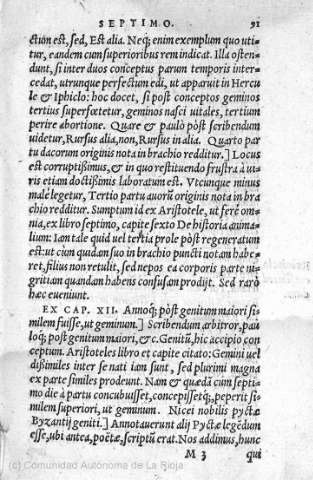 SEPTIMO. 91
ctum est, sed, Est alia. Neq; enim exemplum quo uti-
tur, eandem cum superioribus rem indicat. Illa osten-
dunt, si inter duos conceptus parum temporis inter-
cedat, utrunque perfectum edi, ut apparuit in Hercu
le & Iphiclo: hoc docet, si post conceptos geminos
tertius superfœtetur, geminos nasci uitales, tertium
perire abortione. Quare & paulò pòst scribendum
uidetur, Rursus alia, non, Rursus in alia. Quarto par
tu dacorum originis nota in brachio redditur.] Locus
est corruptissimus, & in quo restituendo frustra à ut-
ris etiam doctissimis laboratum est. Vtcunque minus
malè legetur, Tertio partu auorũ originis nota in bra-
chio redditur. Sumptum id ex Aristotele, ut ferè om-
nia, ex libro septimo, capite sexto De historia anima-
lium: Iam tale quid uel tertia prole pòst regeneratum
est: ut cùm quidam suo in brachio puncti notam habe-
ret, filius non retulit, sed nepos ea corporis parte ni-
gritiam quandam habens confusam prodijt. Sed rarò
hæc eueniunt.
EX CAP. XII. Annoq; pòst genitum maiori si-
milem fuisse, ut geminum.] Scribendum arbitror, pau
loq; post genitum maiori, &c. Genitũ, hic accipio con
ceptum. Aristoteles libro et capite citato: Gemini uel
dissimiles inter se nati iam sunt, sed plurimi magna
ex parte similes prodeunt. Nam & quædã cum septi-
mo die à partu concubuisset, concepissetq;, peperit si-
milem superiori, ut geminum. Nicei nobilis pyctæ
Byzantij geniti.] Annotauerunt alij Pyctæ legẽdum
esse, ubi antea, poëtæ, scriptũ erat. Nos addimus, hunc
M 3 qui
(c) Comunidad Autónoma de La Rioja